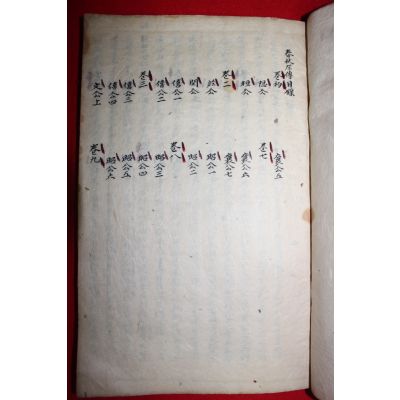 春秋左傳目錄
卷初
隱公
桓公
卷二
莊公
閔公
僖公一
僖公二
卷三
僖公三
僖公四
文公上
襄公五
卷七
襄公六
襄公七
昭公一
昭公二
卷八
昭公三
昭公四
昭公五
昭公六
卷九